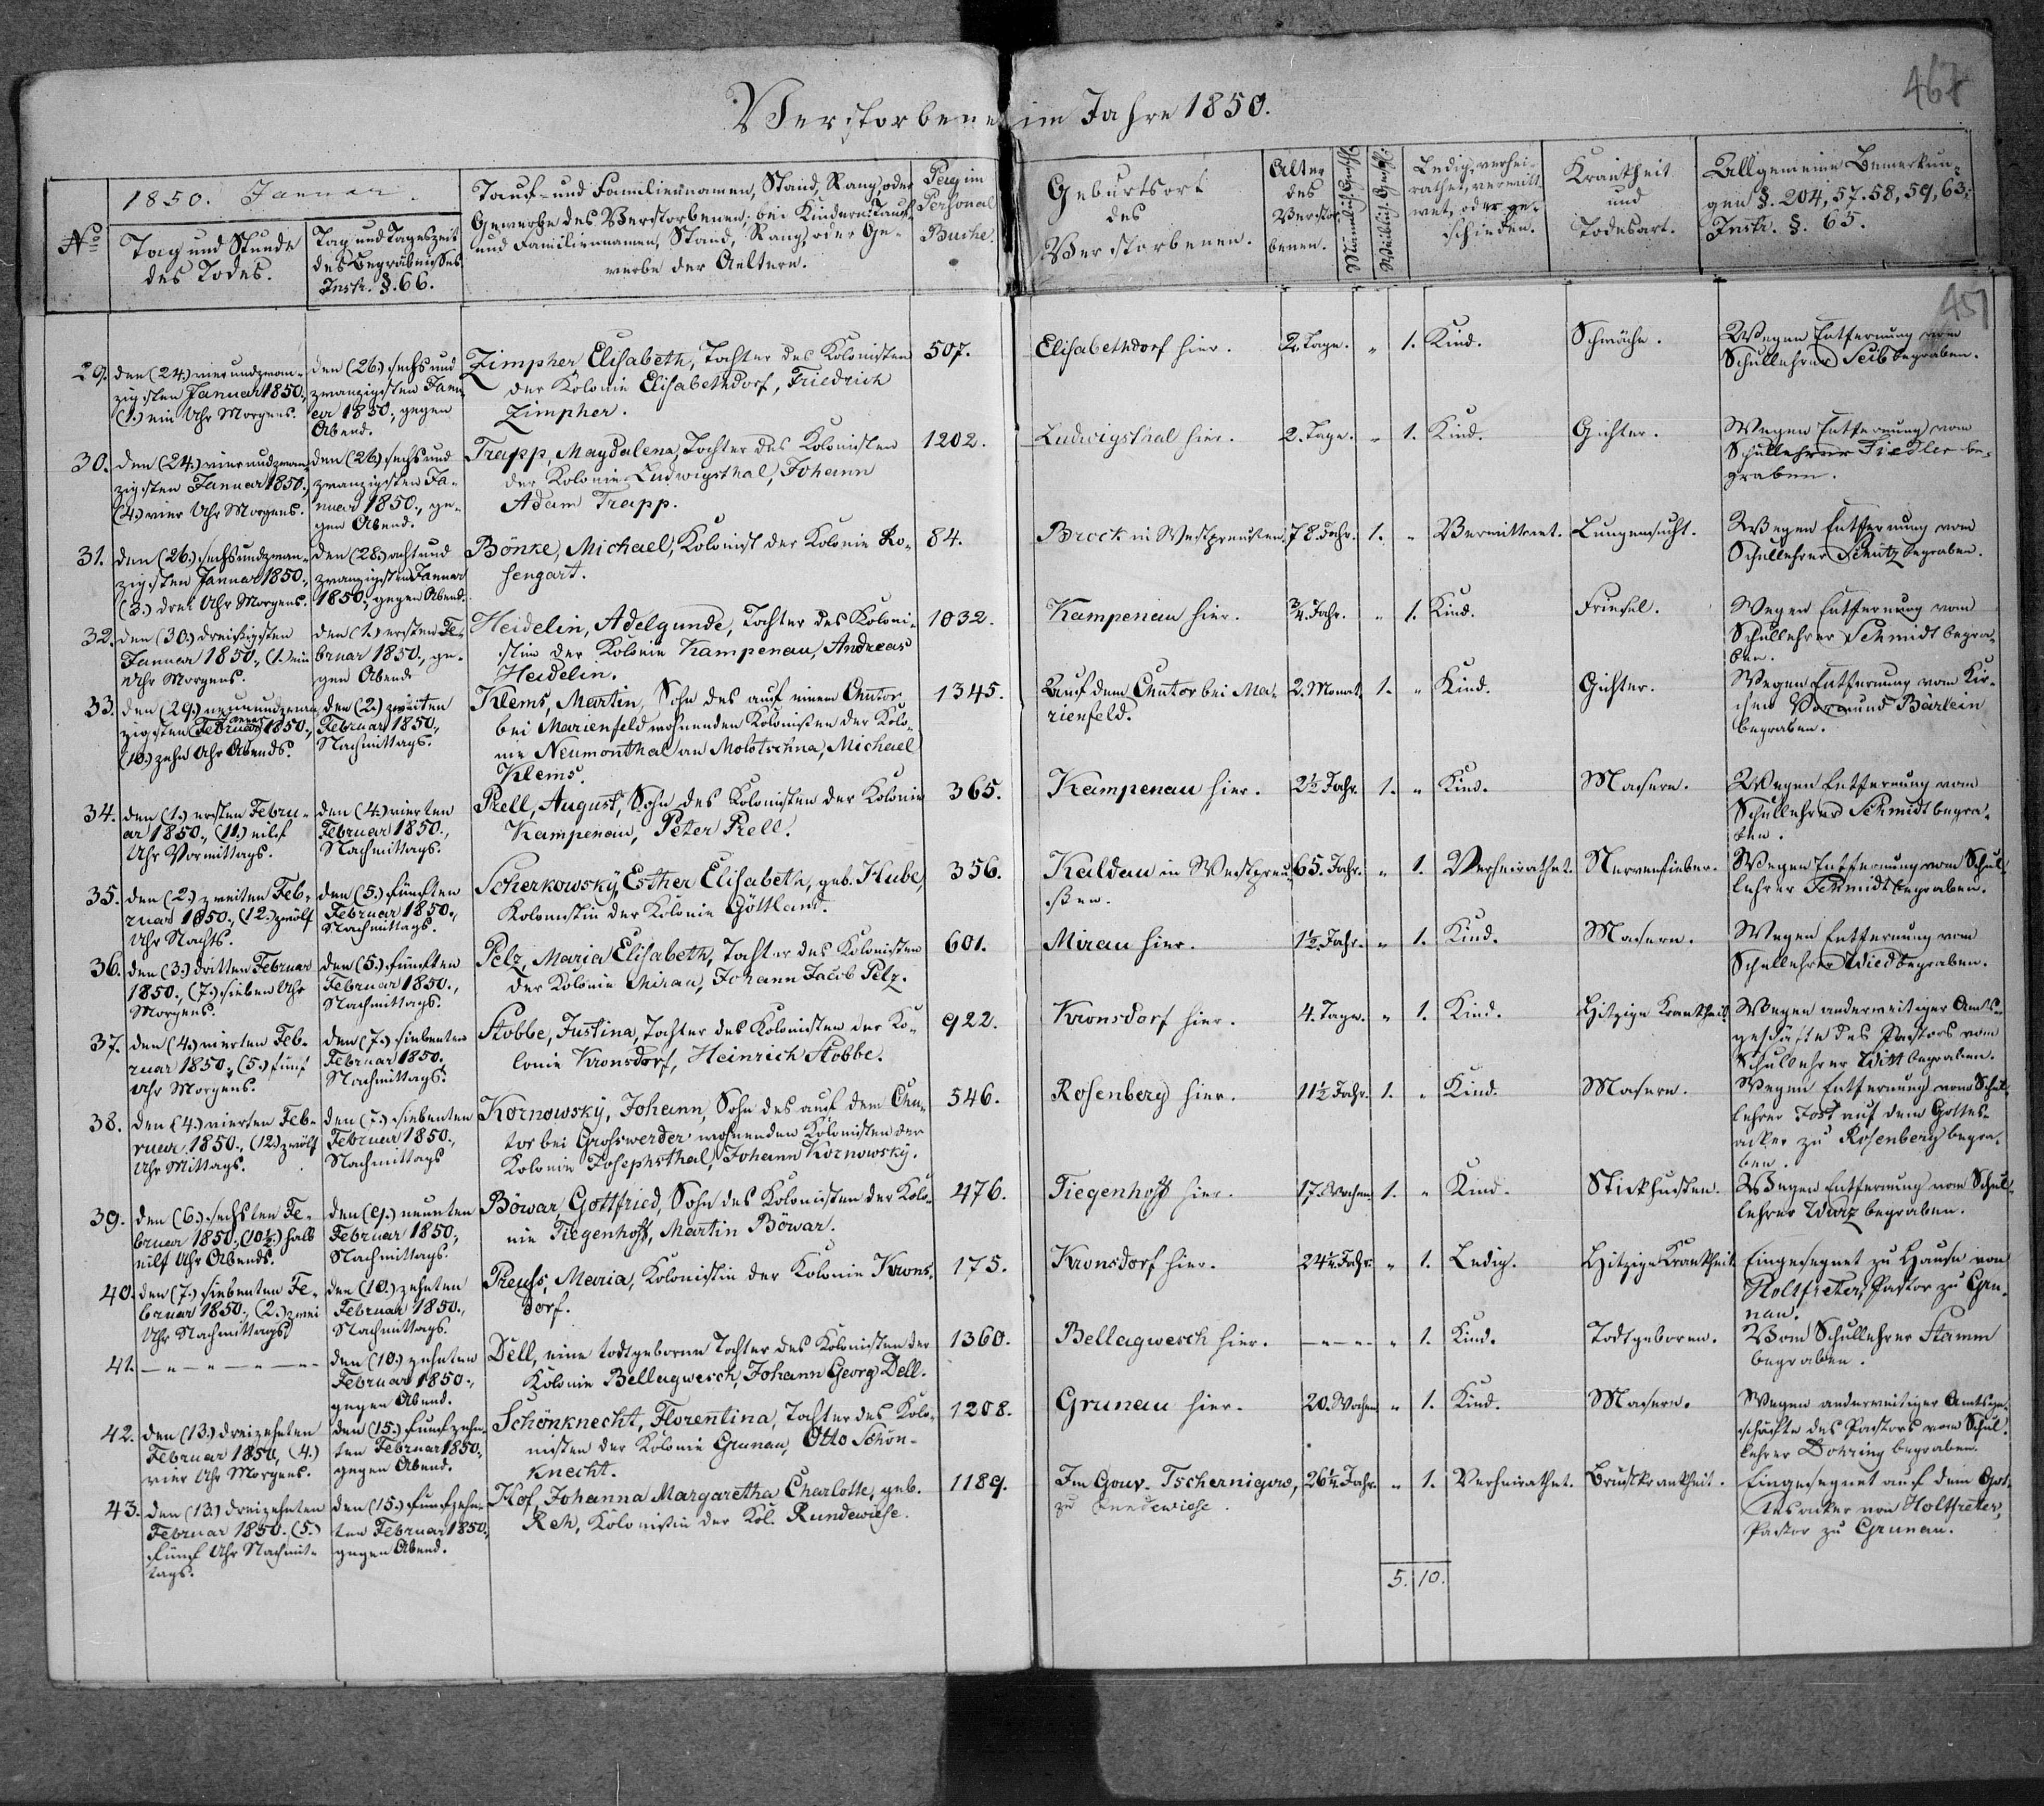 Verstorbene im Jahre 1850.
467
451
No
1850. Januar.
Tag und Stunde
des Todes.
Tag und Tageszeit
des Begräbnisses
Instr. §. 66.
Tauf- und Familiennamen, Stand, Rang, oder
Gewerbe des Verstorbenen; bei Kindern: Tauf-
und Familiennamen, Stand, Rang, oder Ge-
werbe der Aeltern.
Pag im
Personal
Buche.
Geburtsort
des
Verstorbenen.
Alter
des
Verstor-
benen.
Männlich. Geschl.
Weiblich. Geschl.
Ledig, verhei-
rathet, verwitt-
wet, oder ge-
schieden.
Krankheit
und
Todesart.
Allgemeine Bemerkun-
gen §. 204, 57. 58, 59, 63;
Instr. §. 65.
29. den (24.) vierundzwan-
zigsten Januar 1850.,
(1.) ein Uhr Morgens.
den (26.) sechs und
zwanzigsten Janu-
ar 1850., gegen
Abend.
Zimpher, Elisabeth, Tochter des Kolonisten
der Kolonie Elisabethdorf, Friedrich
Zimpher.
507.
Elisabethdorf hier.
2. Tage. " 1. Kind.
Schwäche.
Wegen Entfernung vom
Schullehrer Seib begraben.
30. den (24.) vierundzwan-
zigsten Januar 1850.,
(4.) vier Uhr Morgens.
den (26.) sechs und
zwanzigsten Ja-
nuar 1850., ge-
gen Abend.
Trapp, Magdalena, Tochter des Kolonisten
der Kolonie Ludwigsthal, Johann
Adam Trapp.
1202.
Ludwigsthal hier.
2. Tage. " 1. Kind.
Gichter.
Wegen Entfernung vom
Schullehrer Fiedler be-
graben.
31. den (26.) sechsundzwan-
zigsten Januar 1850.,
(3.) drei Uhr Morgens.
den (28.) acht und
zwanzigsten Januar
1850., gegen Abend.
Bönke, Michael, Kolonist der Kolonie Ro-
sengart.
84.
Brock in Westpreußen.
78. Jahr. 1. " Verwittwet.
Lungensucht.
Wegen Entfernung vom
Schullehrer Schütz begraben.
32. den (30.) dreißigsten
Januar 1850., (1.) ein
Uhr Morgens.
den (1.) ersten Fe-
bruar 1850., ge-
gen Abend.
Heidelin, Adelgunde, Tochter des Koloni-
sten der Kolonie Kampenau, Andreas
Heidelin.
1032.
Kampenau hier.
3/4. Jahr. " 1. Kind.
Friesel.
Wegen Entfernung vom
Schullehrer Schmidt begra-
ben.
33. den (29.) neunundzwan-
zigsten Januar 1850.,
(10.) zehn Uhr Abends.
den (2.) zweiten
Februar 1850.,
Nachmittags.
Klems, Martin, Sohn des auf einem Chutor
bei Marienfeld wohnenden Kolonisten der Kolo-
nie Neumonthal an Molotschna, Michael
Klems.
1345.
Auf dem Chutor bei Ma-
rienfeld.
2. Monat. 1. " Kind.
Gichter.
Wegen Entfernung vom Kir-
chen Vormund Bärlein
begraben.
34. den (1.) ersten Febru-
ar 1850., (11.) eilf
Uhr Vormittags.
den (4.) vierten
Februar 1850.,
Nachmittags.
Prell, August, Sohn des Kolonisten der Kolonie
Kampenau, Peter Prell.
365.
Kampenau hier.
2 1/2 Jahr. 1. " Kind.
Masern.
Wegen Entfernung vom
Schullehrer Schmidt begra-
ben.
35. den (2.) zweiten Feb-
ruar 1850., (12.) zwölf
Uhr Nachts.
den (5.) fünften
Februar 1850.,
Nachmittags.
Scherkowsky, Esther Elisabeth, geb. Hube,
Kolonistin der Kolonie Göttland.
356.
Kaldau in Westpreu-
ßen.
65. Jahr. " 1. Verheirathet.
Nervenfieber.
Wegen Entfernung vom Schul-
lehrer Schmidt begraben.
36. den (3.) dritten Februar
1850., (7.) sieben Uhr
Morgens.
den (5.) fünften
Februar 1850.,
Nachmittags.
Pelz, Maria Elisabeth, Tochter des Kolonisten
der Kolonie Mirau, Johann Jacob Pelz.
601.
Mirau hier.
1 1/2. Jahr. " 1. Kind.
Masern.
Wegen Entfernung vom
Schullehrer Wied begraben.
37. den (4.) vierten Feb-
ruar 1850., (5.) fünf
Uhr Morgens.
den (7.) siebenten
Februar 1850.,
Nachmittags.
Stobbe, Justina, Tochter des Kolonisten der Ko-
lonie Kronsdorf, Heinrich Stobbe.
922.
Kronsdorf hier.
4. Tage. " 1. Kind.
Hitzige Krankheit.
Wegen anderweitiger Amts-
geschäfte des Pastors vom
Schullehrer Witt begraben.
38. den (4.) vierten Feb-
ruar 1850., (12.) zwölf
Uhr Mittags.
den (7.) siebenten
Februar 1850.,
Nachmittags
Kornowsky, Johann, Sohn des auf dem Chu-
tor bei Grosswerder wohnenden Kolonisten der
Kolonie Josephsthal, Johann Kornowsky.
546.
Rosenberg hier.
11 1/2 Jahr. 1. " Kind.
Masern.
Wegen Entfernung vom Schul-
lehrer Jost auf dem Gottes-
acker zu Rosenberg begra-
ben.
39. den (6.) sechsten Fe-
bruar 1850., (10 1/2.) halb
eilf Uhr Abends.
den (9.) neunten
Februar 1850.,
Nachmittags.
Böwar, Gottfried, Sohn des Kolonisten der Kolo-
nie Tiegenhoff, Martin Böwar.
476.
Tiegenhoff hier.
17. Wochen. 1. " Kind.
Stickhusten.
Wegen Entfernung vom Schul-
lehrer begraben.
40. den (7.) siebenten Fe-
bruar 1850., (2.) zwei
Uhr Nachmittags
den (10.) zehnten
Februar 1850.,
Nachmittags.
Preuss, Maria, Kolonistin der Kolonie Krons-
dorf.
175.
Kronsdorf hier.
24 1/4. Jahr. " 1. Ledig.
Hitzige Krankheit.
Eingesegnet zu Hause von
Holtfreter, Pastor zu Gru-
nau.
41. — " — " — " — " —
den (10.) zehnten
Februar 1850.,
gegen Abend.
Dell, eine todtgeborne Tochter des Kolonisten der
Kolonie Bellagwesch, Johann Georg Dell.
1360.
Bellagwesch hier.
— " — " — " 1. Kind.
Todtgeboren.
Vom Schullehrer Stamm
begraben.
42. den (13.) dreizehnten
Februar 1850., (4.)
vier Uhr Morgens.
den (15.) fünfzehn-
ten Februar 1850.,
gegen Abend.
Schönknecht, Florentina, Tochter des Kolo-
nisten der Kolonie Grunau, Otto Schön-
knecht.
1208.
Grunau hier.
20. Wochen " 1. Kind.
Masern.
Wegen anderweitiger Amtsge-
schäfte des Pastors vom Schul-
lehrer Dohring begraben.
43. den (13.) dreizehnten
Februar 1850. (5.)
fünf Uhr Nachmit-
tags.
den (15.) fünfzehn-
ten Februar 1850.,
gegen Abend.
Hof, Johanna Margaretha Charlotte, geb.
Reh, Kolonistin der Kol. Rundewiese.
1189.
Im Gouv. Tschernigow,
zu Rundewiese.
26 1/4. Jahr. " 1. Verheirathet.
Brustkrankheit.
Eingesegnet auf dem Got-
tesacker von Holtfreter,
Pastor zu Grunau.
5. 10.